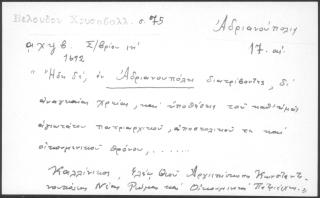 Βελούδου Χρυσόβουλλ. σ. 75
Ἀδριανούπολις
αχϟβ Σ/βρίου ιη΄
17. αἰ.
1692
"Ἤδη δέ, ἐν Ἀδριανουπόλει διατρίβοντες, δι᾽
ἀναγκαίαν χρείαν, καὶ ὑποθέσεις τοῦ καθ᾽ ἡμᾶς
ἁγιωτάτου πατριαρχικοῦ, ἀποστολικοῦ τε καὶ
οἰκουμενικοῦ θρόνου, ......
Καλλίνικος, ἐλέῳ Θεοῦ Ἀρχιεπίσκοπος Κωνσταντι-
νουπόλεως Νέας Ῥώμης καὶ Οἰκουμενικὸς Πατριάρχης